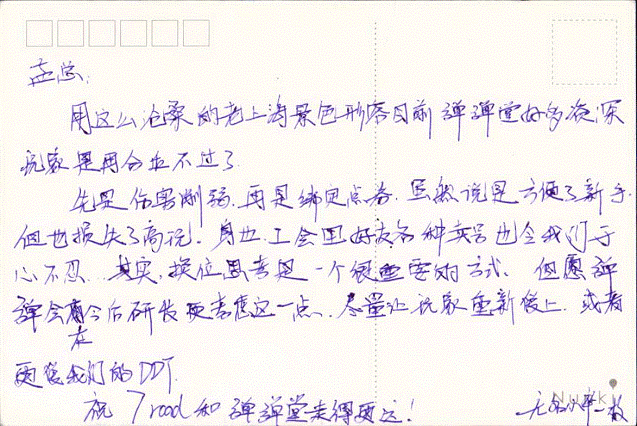 孟总:
用这么沧桑的老上海景色形容目前弹弹堂好多资深
玩家是再合适不过了
先是伤害削弱,再是绑定点券.虽然说是方便了新手
但也损失了高玩.身边工会里好友各种卖号也令我们于
心不忍.其实,换位思考是一个很重要的方式.但愿弹
弹会在今后研发更考虑这一点.尽量让玩家重新爱上.或者
更爱我们的DDT.
祝7road和弹弹堂走得更远!